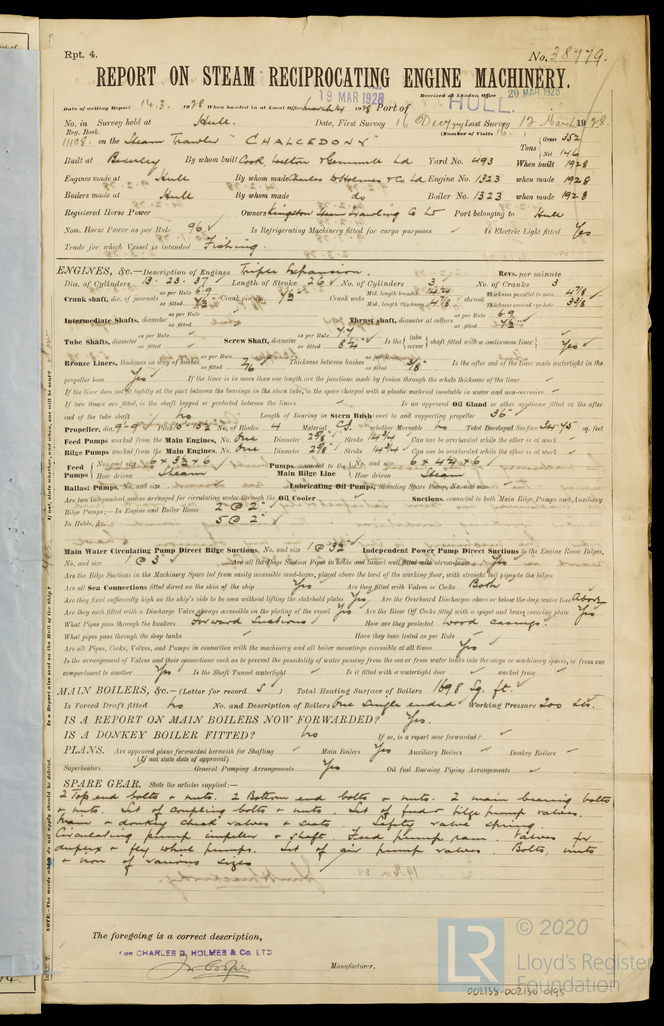 Rpt. 4.
No. 38779.
REPORT ON STEAM RECIPROCATING ENGINE MACHINERY.
19 MAR 1928
Received at London Office 20 MAR 1928
Date of writing Report 14.3. 1928 When handed in at Local Office March 14 1928 Port of HULL.
No. in Survey held at Hull. Date, First Survey 16 Dec 27 Last Survey 17 March 1928.
Reg. Book. (Number of Visits 16.)
11108 on the Steam Trawler "CHALCEDONY" Tons Gross 352 Net 146
Built at Beverley By whom built Cook, Welton & Gemmell Ld Yard No. 493 When built 1928
Engines made at Hull By whom made Charles D. Holmes & Co Ld Engine No. 1323 when made 1928
Boilers made at Hull By whom made do Boiler No. 1323 when made 1928
Registered Horse Power Owners Kingston Steam Trawling Co Ld Port belonging to Hull
Nom. Horse Power as per Rule 96 Is Refrigerating Machinery fitted for cargo purposes Is Electric Light fitted Yes
Trade for which Vessel is intended Fishing.
ENGINES, &c.—Description of Engines Triple Expansion. Revs. per minute
Dia. of Cylinders 13. 23. 37 Length of Stroke 26 No. of Cylinders 3 No. of Cranks 3
Crank shaft, dia. of journals as per Rule 6.9 as fitted 7½ Crank pin dia. 7½ Crank webs Mid. length breadth Mid. length thickness 4⅞ shrunk Thickness parallel to axis 4⅞ Thickness around eye hole
Intermediate Shafts, diameter as per Rule as fitted Thrust shaft, diameter at collars as per Rule 6.9 as fitted 7½
Tube Shafts, diameter as per Rule as fitted Screw Shaft, diameter as per Rule 7.7 as fitted 8¼ Is the tube screw shaft fitted with a continuous liner Yes
Bronze Liners, thickness in way of bushes as per Rule as fitted Thickness between bushes as per Rule as fitted Is the after end of the liner made watertight in the
propeller boss Yes If the liner is in more than one length are the junctions made by fusion through the whole thickness of the liner
If the liner does not fit tightly at the part between the bearings in the stern tube, is the space charged with a plastic material insoluble in water and non-corrosive
If two liners are fitted, is the shaft lapped or protected between the liners Is an approved Oil Gland or other appliance fitted at the after
end of the tube shaft no Length of Bearing in Stern Bush next to and supporting propeller 36"
Propeller, dia. 9-9 Pitch No. of Blades 4 Material C.I. whether Moveable no Total Developed Surface 34.45 sq. feet
Feed Pumps worked from the Main Engines, No. One Diameter 2⅝ Stroke 14¾ Can one be overhauled while the other is at work
Bilge Pumps worked from the Main Engines, No. One Diameter 2⅝ Stroke 14¾ Can one be overhauled while the other is at work
Feed Pumps No. and size How driven Steam Pumps connected to the Main Bilge Line No. and size How driven Steam
Ballast Pumps, No. and size Lubricating Oil Pumps, including Spare Pump, No. and size
Are two independent means arranged for circulating water through the Oil Cooler Suctions, connected to both Main Bilge Pumps and Auxiliary
Bilge Pumps:—In Engine and Boiler Room 2 @ 2"
In Holds, &c. 5 @ 2"
Main Water Circulating Pump Direct Bilge Suctions, No. and size Independent Power Pump Direct Suctions to the Engine Room Bilges,
No. and size 1 @ 3" Are all the Bilge Suction Pipes in holds and tunnel well fitted with strum-boxes Yes
Are the Bilge Suctions in the Machinery Space led from easily accessible mud-boxes, placed above the level of the working floor, with straight tail pipes to the bilges
Are all Sea Connections fitted direct on the skin of the ship Yes Are they fitted with Valves or Cocks Both
Are they fixed sufficiently high on the ship's side to be seen without lifting the stokehold plates Yes Are the Overboard Discharges above or below the deep water line Above
Are they each fitted with a Discharge Valve always accessible on the plating of the vessel Yes Are the Blow Off Cocks fitted with a spigot and brass covering plate Yes
What Pipes pass through the bunkers Forward Suctions How are they protected Wood casings.
What pipes pass through the deep tanks Have they been tested as per Rule
Are all Pipes, Cocks, Valves, and Pumps in connection with the machinery and all boiler mountings accessible at all times Yes
Is the arrangement of Valves and their connections such as to prevent the possibility of water passing from the sea or from water tanks into the cargo or machinery spaces, or from one
compartment to another Yes Is the Shaft Tunnel watertight Is it fitted with a watertight door worked from
MAIN BOILERS, &c.—(Letter for record S) Total Heating Surface of Boilers 1698 Sq. ft.
Is Forced Draft fitted no No. and Description of Boilers One Single ended Working Pressure 200 lbs.
IS A REPORT ON MAIN BOILERS NOW FORWARDED? Yes.
IS A DONKEY BOILER FITTED? no If so, is a report now forwarded?
PLANS. Are approved plans forwarded herewith for Shafting Main Boilers Yes Auxiliary Boilers Donkey Boilers
(If not state date of approval)
Superheaters General Pumping Arrangements Yes Oil fuel Burning Piping Arrangements
SPARE GEAR. State the articles supplied:—
2 Top end bolts & nuts. 2 Bottom end bolts & nuts. 2 main bearing bolts
& nuts. Set of coupling bolts & nuts. Set of feed & bilge pump valves.
Main & donkey check valves & seats. Safety valve spring.
Circulating pump impeller & shaft. Feed pump ram. Valves for
duplex & fly wheel pumps. Set of air pump valves. Bolts, nuts
& iron of various sizes
The foregoing is a correct description,
FOR CHARLES D. HOLMES & Co. LTD
Manufacturer.
© 2020
LR Lloyd's Register
Foundation
002138-002150-0195